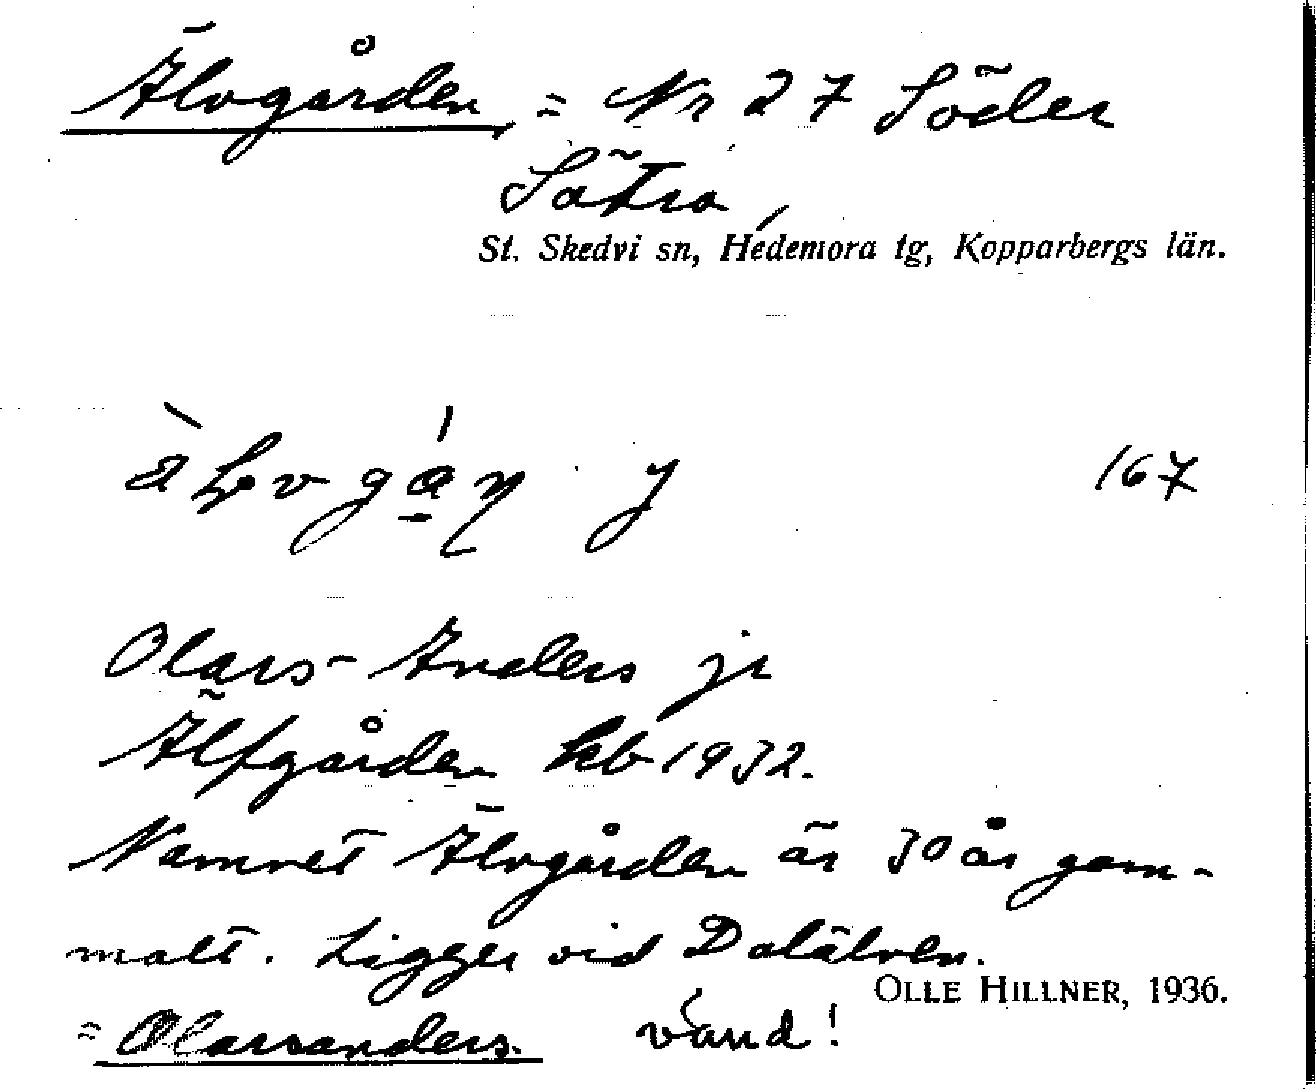 Älvgården, = Nr 27 Söder
Sätra,
St. Skedvi sn, Hedemora tg, Kopparbergs län.
167
Olars-Anders jr
Älfgården kb 1932.
Namnet Älvgården är 30 år gam-
malt. Ligger vid Dalälven.
OLLE HILLNER, 1936.
= Olarsanders. vänd!